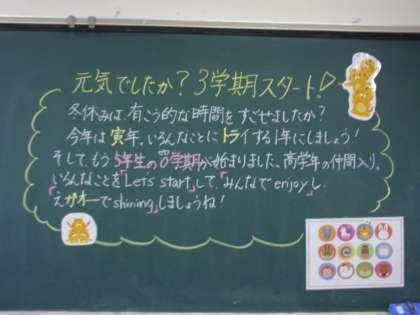 元気でしたか？3学期スタート！
冬休みは、有こう的な時間をすごせましたか？
今年は寅年。いろんなことにトライする1年にしましょう！
そして、もう5年生の0学期が始まりました。高学年の仲間入り。
いろんなことを「Lets start」して、「みんなでenjoy」し、
「えがオーでshining」しましょうね！